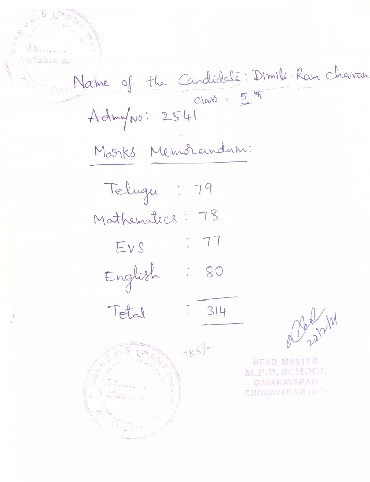 Name of the Candidate: Dimili Ram Charan
Class : 5th
Adm/No: 2541
Marks Memorandum:
Telugu : 79
Mathematics : 78
EVS : 77
English : 80
Total : 314
HEAD MASTER
M.P.P. SCHOOL
GAVARAVARAM
CHODAVARAM (MD)